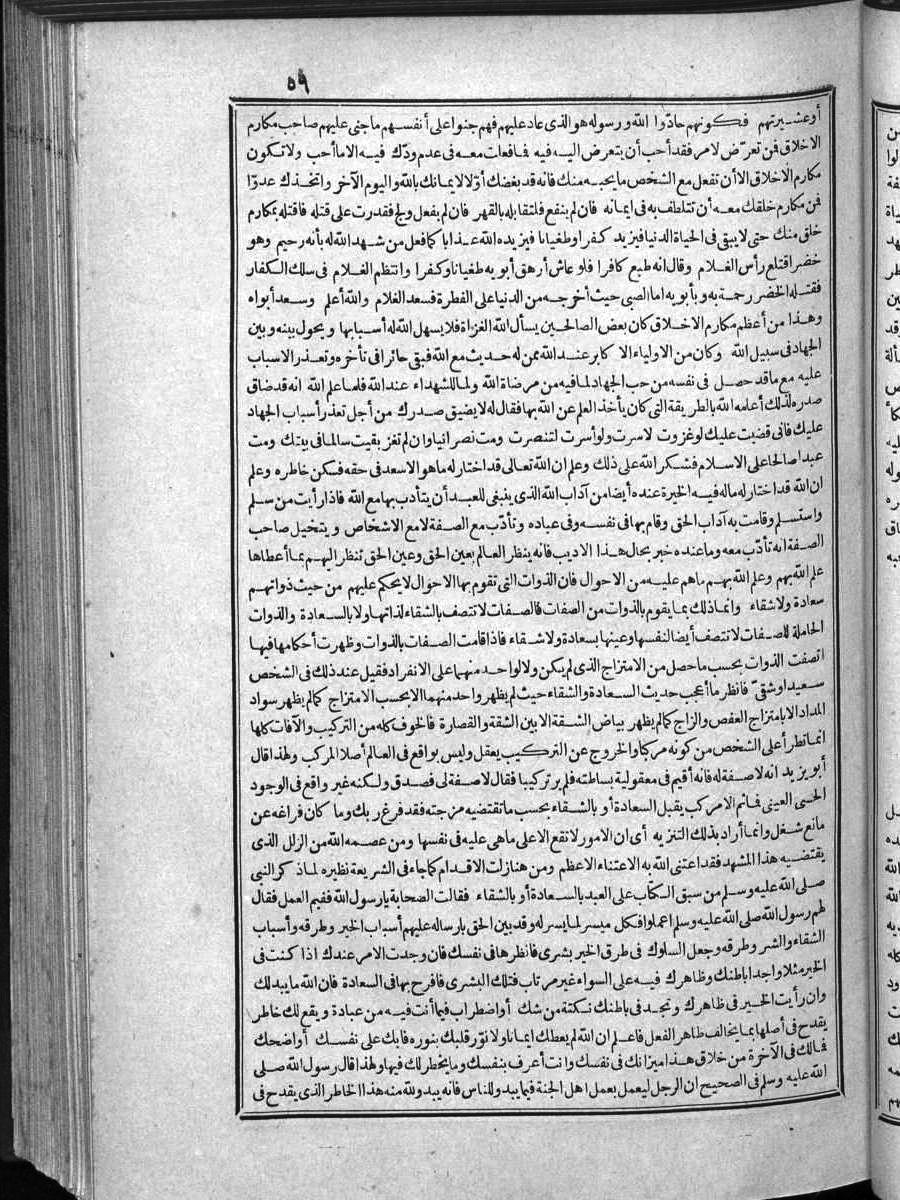 ٥٩
أوعشيرتهم فكونهم حادّوا الله ورسوله هو الذى عاد عليهم فهم جنوا على أنفسهم ما جنى عليهم صاحب مكارم
الاخلاق فمن تعرّض لامر فقد أحب أن يتعرض اليه فيه فما فعلت معه فى عدم ودّك فيه الا ما أحب ولا تكون
مكارم الاخلاق الا أن تفعل مع الشخص ما يحبه منك فانه قد بغضك أوّلا لايمانك بالله واليوم الآخر واتخذك عدوّا
فمن مكارم خلقك معه أن تتلطف به فى ايمانه فان لم ينفع فلتقابله بالقهر فان لم يفعل ولج فقدرت على قتله فاقتله بمكارم
خلق منك حتى لا يبقى فى الحياة الدنيا فيزيد كفرا وطغيانا فيزيده الله عذابا كما فعل من شهد الله له بأنه رحيم وهو
خضر اقتلع رأس الغلام وقال انه طبع كافرا فلو عاش أرهق أبويه طغيانا وكفرا وانتظم الغلام فى سلك الكفار
فقتله الخضر رحمة به وبأبويه اما الصبى حيث أخرجه من الدنيا على الفطرة فسعد الغلام والله أعلم وسعد أبواه
وهذا من أعظم مكارم الاخلاق كان بعض الصالحين يسأل الله الغزاة فلا يسهل الله له أسبابها ويحول بينه وبين
الجهاد فى سبيل الله وكان من الاولياء الاكابر عند الله ممن له حديث مع الله فبقى حائرا فى تأخره وتعذر الاسباب
عليه مع ما قد حصل فى نفسه من حب الجهاد لما فيه من مرضاة الله ولما للشهداء عند الله فلما علم الله انه قد ضاق
صدره لذلك أعلمه الله بالطريقة التى كان يأخذ العلم عن الله بها فقال له لا يضيق صدرك من أجل تعذر أسباب الجهاد
عليك فانى قضيت عليك لو غزوت لاسرت ولو أسرت لتنصرت ومت نصرانيا وان لم تغز بقيت سالما فى بيتك ومت
عبدا صالحا على الاسلام فشكر الله على ذلك وعلم ان الله تعالى قد اختار له ما هو الاسعد فى حقه فسكن خاطره وعلم
ان الله قد اختار له ماله فيه الخيرة عنده أيضا من آداب الله الذى ينبغى للعبد أن يتأدب بها مع الله فاذا رأيت من سلم
واستسلم وقامت به آداب الحق وقام بها فى نفسه وفى عباده وتأدّب مع الصفة لا مع الاشخاص ويتخيل صاحب
الصفة انه تأدّب معه وما عنده خبر بحال هذا الاديب فانه ينظر العالم بعين الحق وعين الحق تنظر اليهم بما أعطاها
علم الله بهم وعلم الله بهم ما هم عليه من الاحوال فان الذوات التى تقوم بها الاحوال لا يحكم عليهم من حيث ذواتهم
سعادة ولا شقاء وانما ذلك بما يقوم بالذوات من الصفات فالصفات لا تتصف بالشقاء لذاتها ولا بالسعادة والذوات
الحاملة للصفات لا تتصف أيضا لنفسها وعينها بسعادة ولا شقاء فاذا قامت الصفات بالذوات وظهرت أحكامها فيها
اتصفت الذوات بحسب ما حصل من الامتزاج الذى لم يكن ولا لواحد منهما على الانفراد فقيل عند ذلك فى الشخص
سعيد أو شقىّ فانظر ما أعجب حديث السعادة والشقاء حيث لم يظهر واحد منهما الا بحسب الامتزاج كما لم يظهر سواد
المداد الا بامتزاج العفص والزاج كما لم يظهر بياض الشقة الا بين الشقة والقصارة فالخوف كله من التركيب والآفات كلها
انما تطرأ على الشخص من كونه مركبا والخروج عن التركيب يعقل وليس بواقع فى العالم أصلا المركب ولهذا قال
أبو يزيد انه لا صفة له فانه أقيم فى معقولية بساطته فلم ير تركيبا فقال لا صفة لى فصدق ولكنه غير واقع فى الوجود
الحسى العينى فما ثم الا مركب يقبل السعادة أو بالشقاء بحسب ما تقتضيه مزجته فقد فرغ ربك وما كان فراغه عن
مانع شغل وانما أراد بذلك التنزيه أى ان الامور لا تقع الا على ما هى عليه فى نفسها ومن عصمه الله من الزلل الذى
يقتضيه هذا المشهد فقد اعتنى الله به الاعتناء الاعظم ومن هنا زلت الاقدام كما جاء فى الشريعة نظيره لما ذكر النبى
صلى الله عليه وسلم من سبق الكتاب على العبد بالسعادة أو بالشقاء فقالت الصحابة يا رسول الله ففيم العمل فقال
لهم رسول الله صلى الله عليه وسلم اعملوا فكل ميسر لما يسر له وقد بين الحق بارساله عليهم أسباب الخير وطرقه وأسباب
الشقاء والشر وطرقه وجعل السلوك فى طرق الخير بشرى فانظرها فى نفسك فان وجدت الامر عندك اذا كنت فى
الخير مثلا واجدا باطنك وظاهرك فيه على السواء غير مرتاب فتلك البشرى فافرح بها فى السعادة فان الله ما يبدلك
وان رأيت الخير فى ظاهرك وتجد فى باطنك نكتة من شك أو اضطراب فيما أنت فيه من عبادة ويقع لك خاطر
يقدح فى أصلها بما يخالف ظاهر الفعل فاعلم ان الله لم يعطك ايمانا ولا نوّر قلبك بنوره فابك على نفسك أو اضحك
فمالك فى الآخرة من خلاق هذا ميزانك فى نفسك وانت أعرف بنفسك وما يخطر لك فيها ولهذا قال رسول الله صلى
الله عليه وسلم فى الصحيح ان الرجل ليعمل بعمل اهل الجنة فيما يبدو للناس فانه يبدو لله منه هذا الخاطر الذى يقدح فى